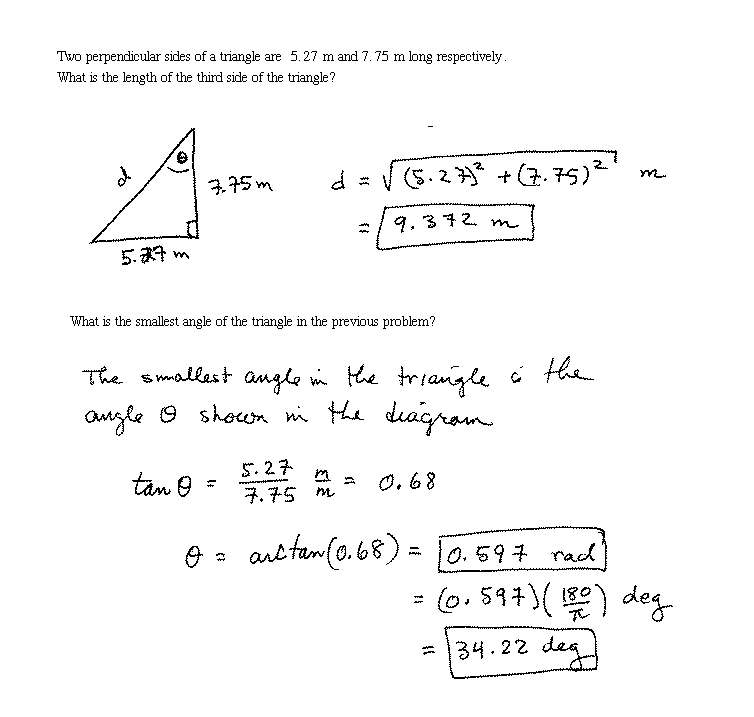 Two perpendicular sides of a triangle are 5.27 m and 7.75 m long respectively.
What is the length of the third side of the triangle?
θ
d
7.75 m
5.27 m
d = √((5.27)² + (7.75)²) m
= 9.372 m
What is the smallest angle of the triangle in the previous problem?
The smallest angle in the triangle is the
angle θ shown in the diagram
tan θ = 5.27/7.75 m/m = 0.68
θ = arctan(0.68) = 0.597 rad
= (0.597)(180/π) deg
= 34.22 deg